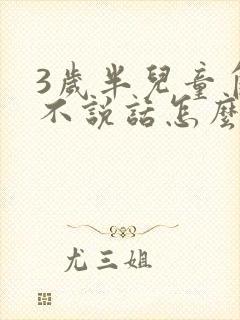 3歲半兒童
不說話怎麼
尤三姐